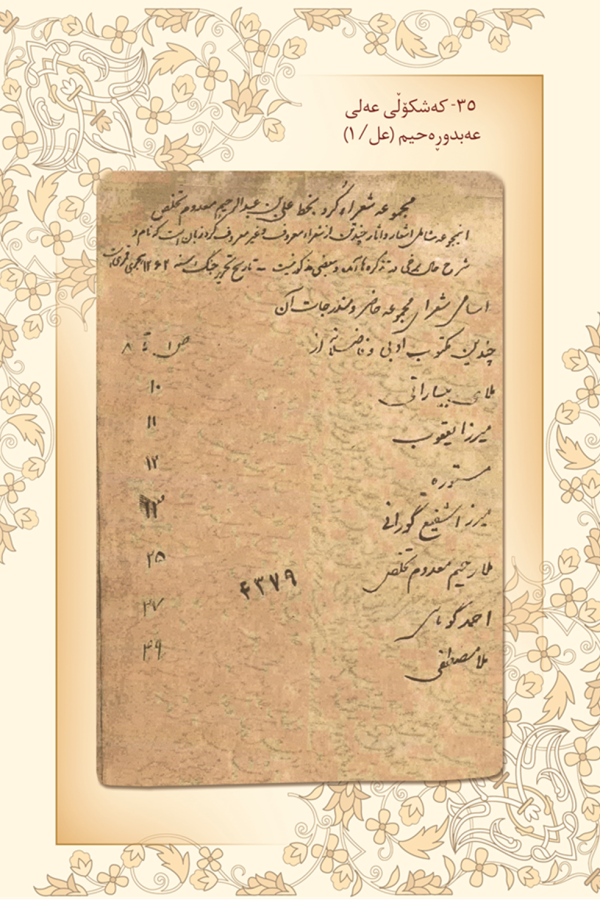 ٣٥- کەشکۆڵی عەلی
عەبدوڕەحیم (عل/ ١)
مجموعه شعراء کُرد بخط علی بن عبدالرحیم معدوم تخلص
اینمجموعه شامل اشعار و آثار چند تن از شعراء معروف و غیر معروف کرد زبان است که نام و
شرح حال برخی در تذکره‌ها آمده و بعضی مذکور نیست - تاریخ تحریر جنگ سنه ۱۲۶۲ هجری قمری است
اسامی شعرای مجموعه حاضر و مندرجات آن
چندین مکتوب ادبی و فاضلانه از ص ۱ تا ۸
ملای بیسارانی ۱۰
میرزا یعقوب ۱۱
مستوره ۱۲
میرزا شفیع گورانی ۱۳
ملا رحیم معدوم تخلص ۲۵
۴۳۷۹
احمد کومای ۲۷
ملا مصطفی ۴۹